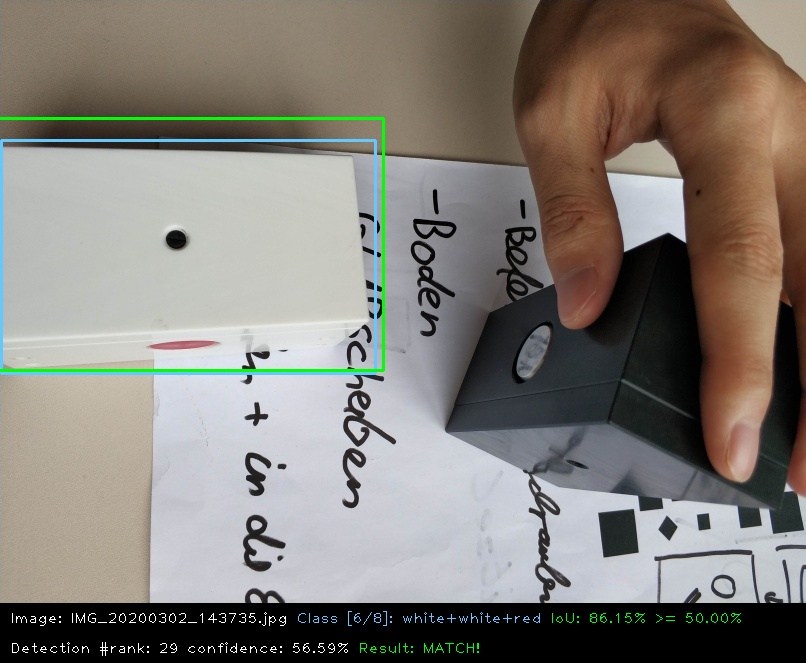 -Boden
scheiben
+ in die
Image: IMG_20200302_143735.jpg Class [6/8]: white+white+red IoU: 86.15% >= 50.00%
Detection #rank: 29 confidence: 56.59% Result: MATCH!